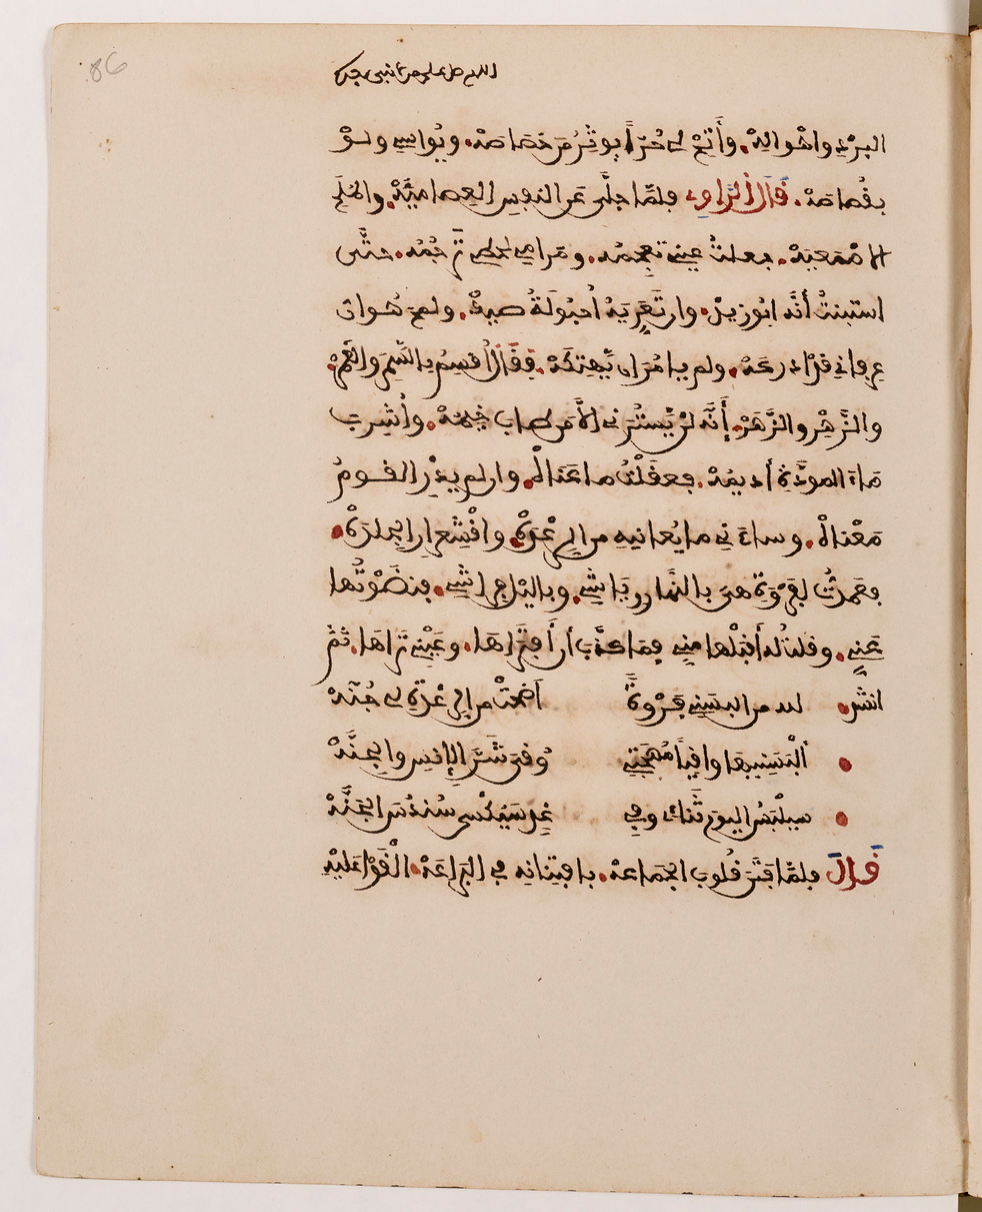 86
اللهم صل على
البرد واحواله. وأتح لي حرا يوثر من خصاصه. ويواسي ولو
بقصاصه. قال الراوي فلما جلى عن النفس العصامية. والملح
الاصمعية. جعلت عيني تعجمه. ومرامي لحظي ترجمه. حتى
استبنت أنه ابوزيد. وان تعريه أحبولة صيد. ولمح هو ان
عرفاني قد ادركه. ولم يامن ان يهتكه. فقال أقسم بالسمر والقمر.
والزهر والزهر. إنه لن يسترني الا من طاب خيمه. وأشرب
ماء المروءة أديمه. فعقلت ما عناه. وان لم يدر القوم
معناه. وساءني ما يعانيه من الرعدة. واقشعرار الجلدة.
فعمدت لفروة هي بالنهار رياشي. وبالليل فراشي. فنضوتها
عني. وقلت له أقبلها مني فما كذب أن أفتراها. وعيني تراها. ثم
انشد لله من البسني فروة أضحت من الرعدة لي جنه
ألبسنيها واقيا مهجتي وقي شر الإنس والجنه
سيلبس اليوم ثناي وفي غد سيكسى سندس الجنه
قال فلما فتن قلوب الجماعه. بافتنانه في البراعة. القوا عليه